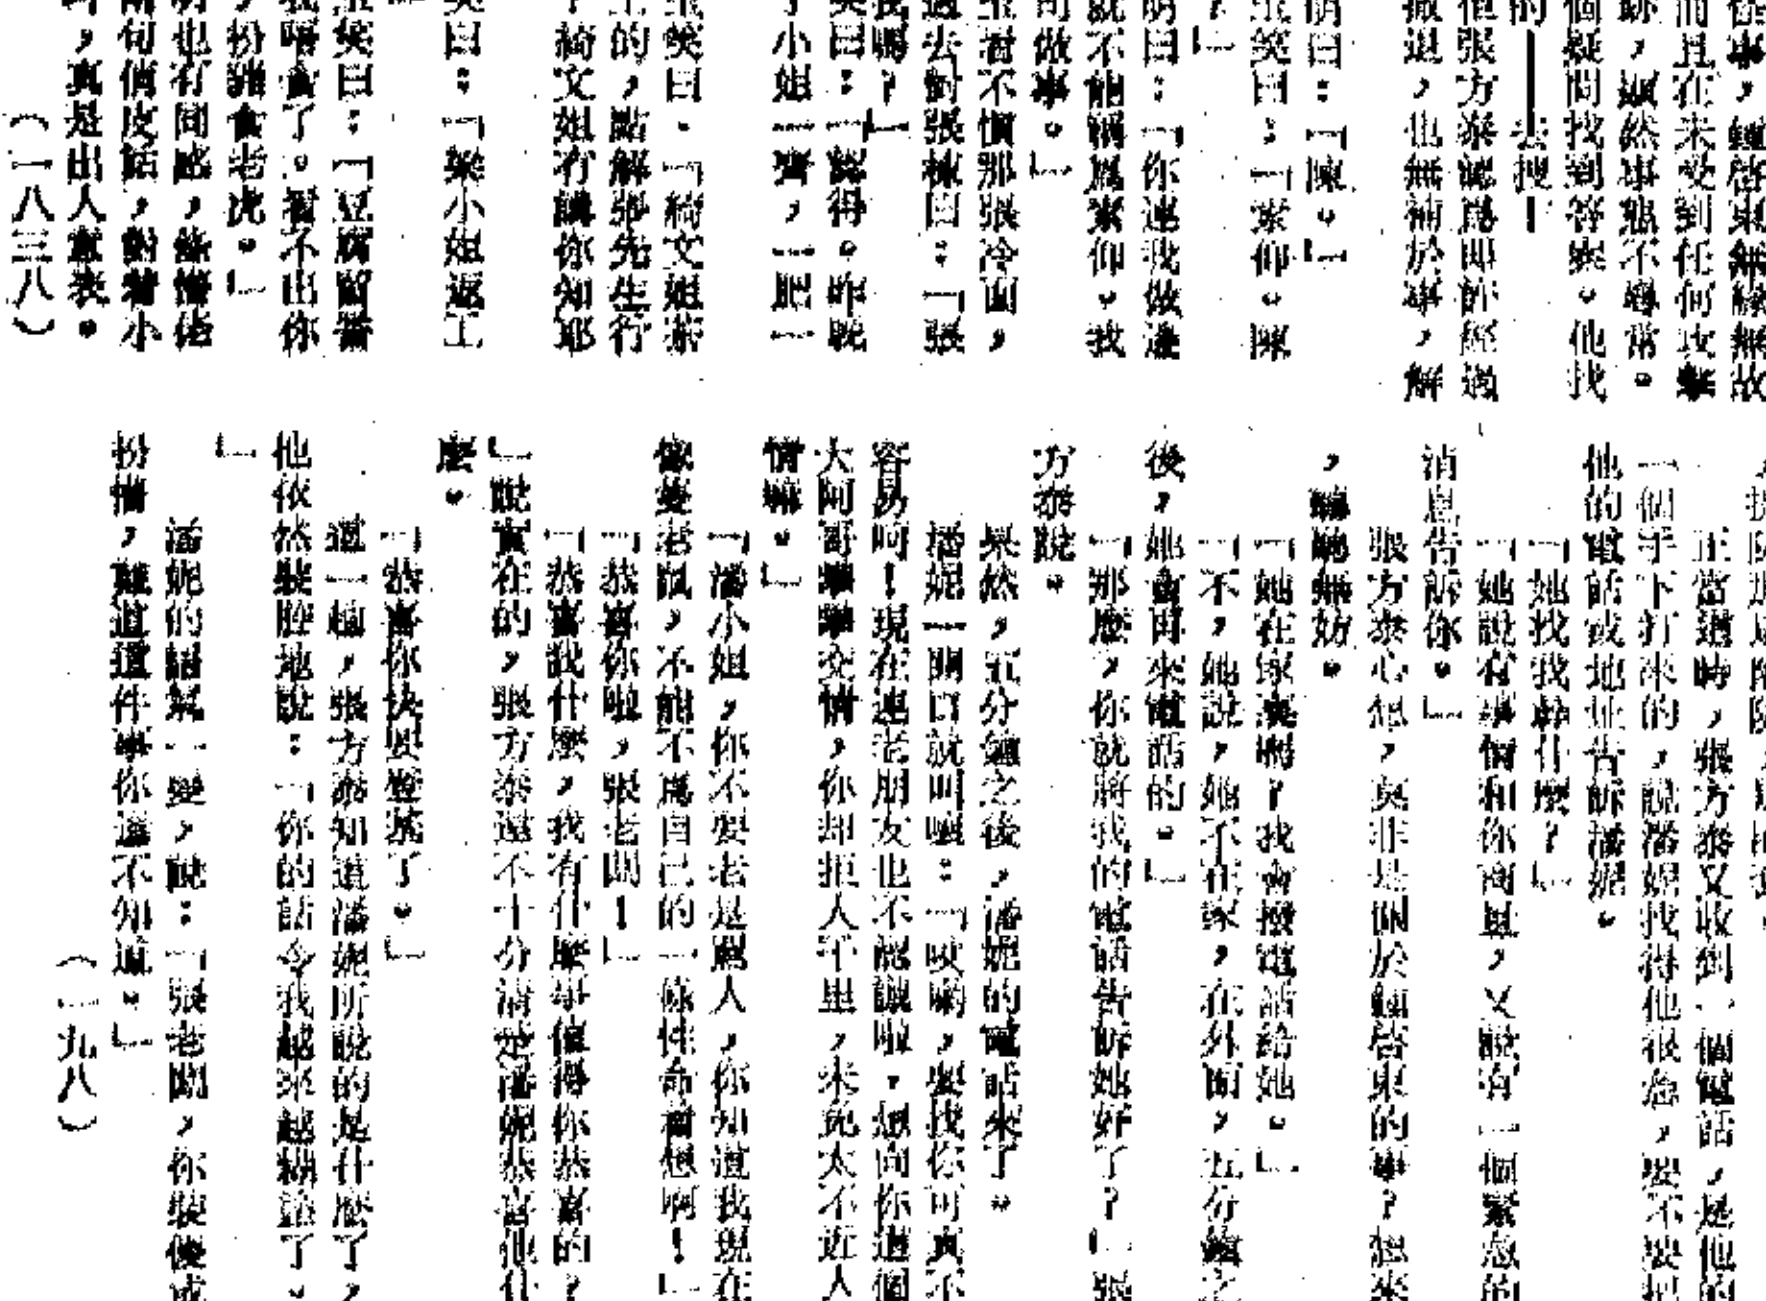 怪事，鍾啓東無緣無故
而且在未受到任何攻擊
跡，顯然事態不尋常。
個疑問找到答案。他找
的——去搜——
但張方泰認爲即許經過
撤退，也無補於事，解
明曰：「陳。」
玉笑曰：「索仰。陳
？」
明曰：「你連我做邊
就不能稱爲索仰。我
司做事。」
玉看不慣那張冷面，
過去對張棟曰：「張
我嗎？」
笑曰：「認得。昨晚
小姐一齊，一肥一
玉笑曰：「綺文姐茶
的，點解張先生行
綺文姐冇講你知耶
笑曰：「梁小姐返工
玉笑曰：「豆腐留番
我唔食了。看不出你
，扮豬食老虎。」
明也有同感，
兩句俏皮話，對着小
，真是出人意表。
（一八三八）
正當這時，張方泰又收到一個電話，是他的
一個手下打來的，說潘妮找得他很急，要不要把
他的電話或地址告訴潘妮。
「她找我幹什麼？」
「她說有事情和你商量，又說有一個緊急的
消息告訴你。」
張方泰心想，莫非是關於鍾啓東的事？想來
，聽聽無妨。
「她在家裏嗎？我會撥電話給她。」
「不，她說，她不在家，在外面，五分鐘之
後，她會再來電話的。」
「那麼，你就將我的電話告訴她好了？」張
方泰說。
果然，五分鐘之後，潘妮的電話來了。
潘妮一開口就叫嚷：「哎喲，要找你可真不
容易呵！現在連老朋友也不認識啦，想向你這個
大阿哥攀攀交情，你却拒人千里，未免太不近人
情嘛。」
「潘小姐，你不要老是罵人，你知道我現在
像隻老鼠，不能不爲自己的一條性命着想啊！」
「恭喜你啦，張老闆！」
「恭喜我什麼，我有什麼事值得你恭喜的？
」說實在的，張方泰還不十分清楚潘妮恭喜他什
麼。
「恭喜你快要登基了。」
這一趟，張方泰知道潘妮所說的是什麼了，
他依然裝腔地說：「你的話令我越來越糊塗了。
」
潘妮的語氣一變，說：「張老闆，你裝傻或
扮懵，難道這件事你還不知道。」
（一九八）